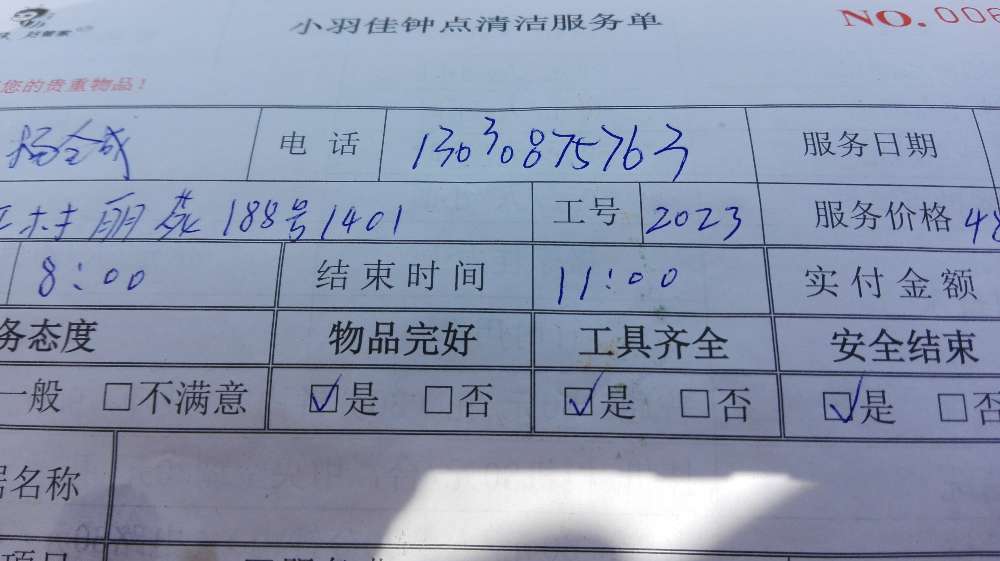 小羽佳钟点清洁服务单 NO.006
好管家
您的贵重物品!
杨全成 电话 13030875763 服务日期
村丽苑188号1401 工号 2023 服务价格 48
8:00 结束时间 11:00 实付金额
务态度 物品完好 工具齐全 安全结束
一般 □不满意 ☑是 □否 ☑是 □否 ☑是 □否
据名称
项目